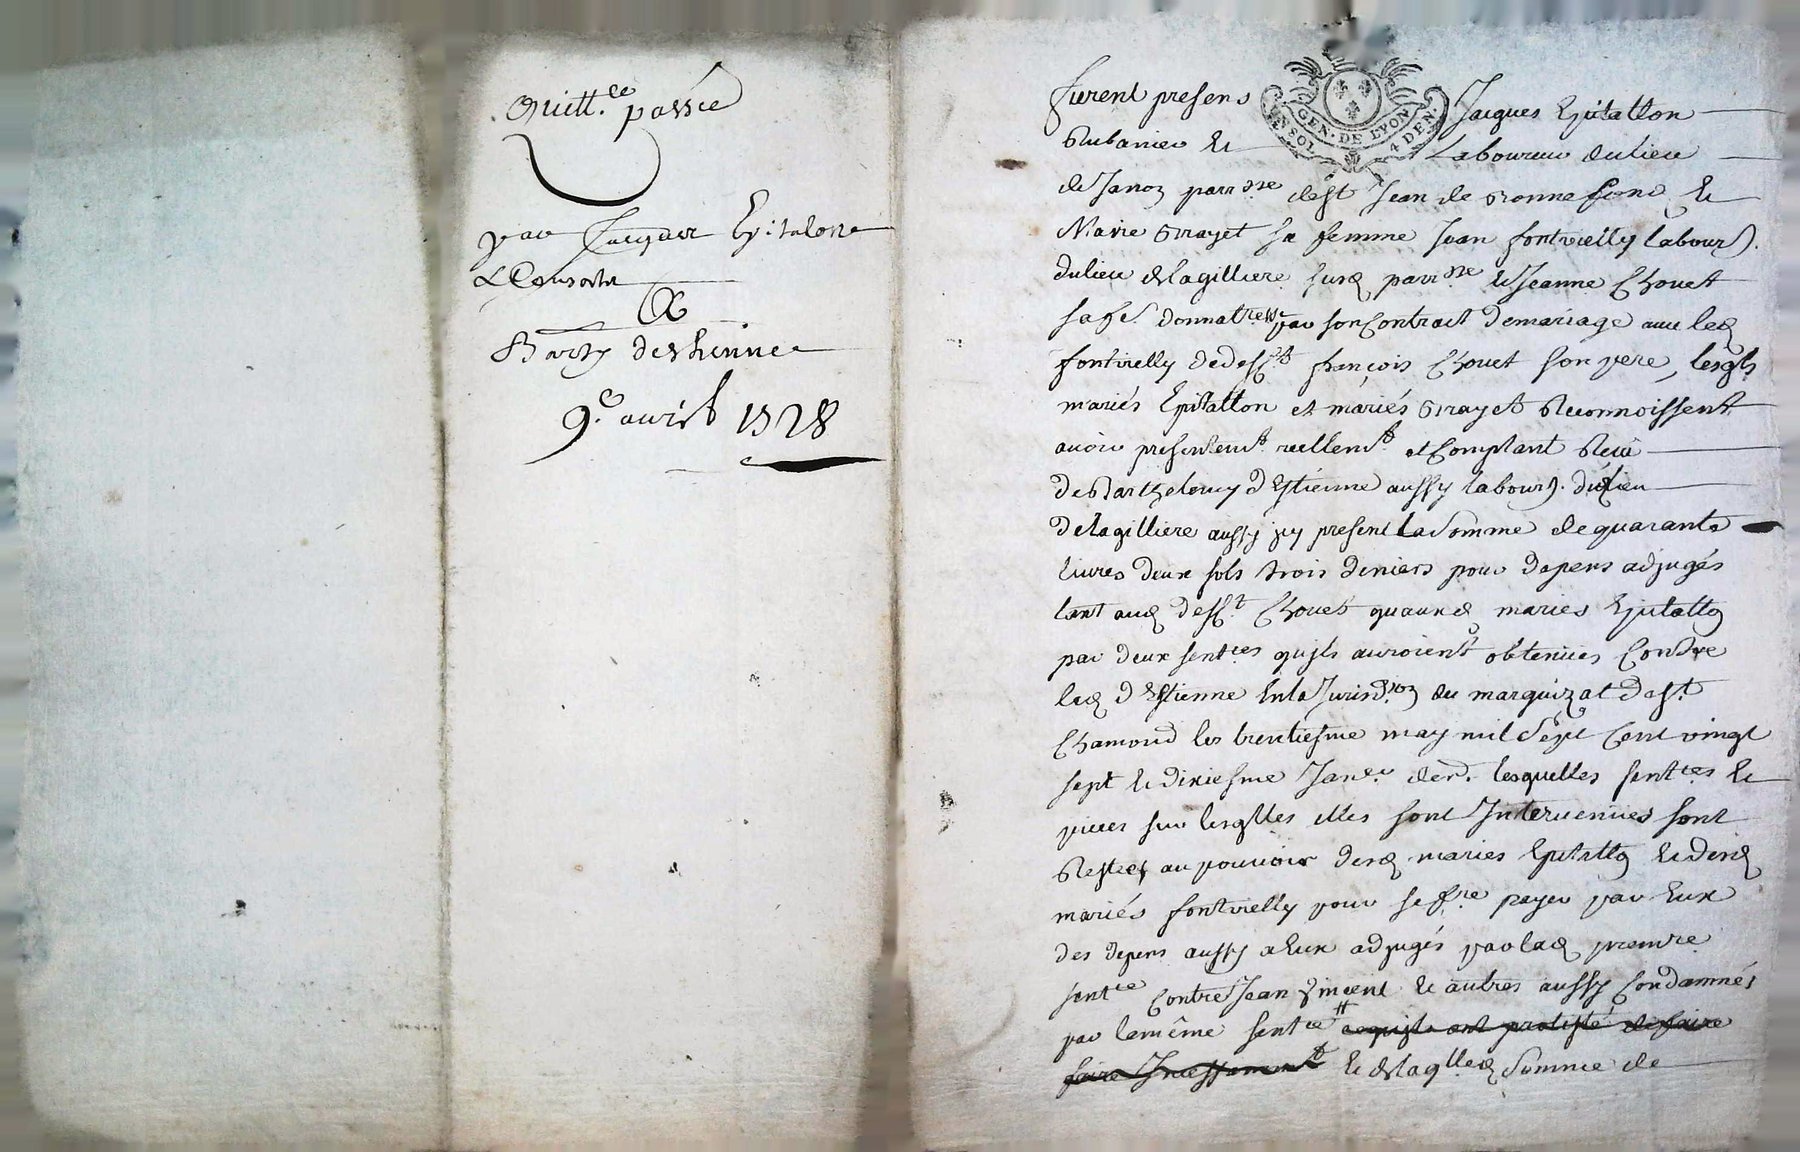 Quitt.ce passée
par Jacques Epitalon
& Consorte
A
Barth destienne
9.e avril 1728
furent presens Jacques Epitallon
Rubanier et Laboureur du lieu
de Janon parr.sse de st Jean de Bonnefond et
Marie Grayet sa femme Jean fontvielly labour.
du lieu de lagilliere susd parr.sse et Jeanne Chouet
sa fe. donnatresse par son Contract de mariage avec led
fontvielly de deff.t françois Chouet son pere, lesqls
mariés Epitallon et mariés Grayet Reconnoissent
avoir presentem.t reellem.t et Comptant Receu
de Barthelemy d Estienne aussy labour. dud lieu
de lagilliere aussy icy present La Somme de quarante
livres deux sols trois deniers pour depens adjugés
tant aud deff.t Chouet quauxd mariés Epitallo
par deux sent.ces quils auroient obtenues Contre
led d Estienne en la Jurisd.ion du marquizat de st
Chamond les trentiesme may mil Sept Cent vingt
sept et dixiesme Janv.er der. lesquelles sent.ces et
pieces sur lesqlles elles sont Intervenues sont
Restees au pouvoir desd mariés Epitallo et desd
mariés fontvielly pour se f.re payer par Eux
des depens aussy a Eux adjugés par lad premre
sent.ce Contre Jean Vincent et autres aussy Condamnés
par la même sent.ce # ce quils ont protesté de faire
faire Incessament et de laqlle d Somme de
GEN. DE LYON
SOL 4 DEN.